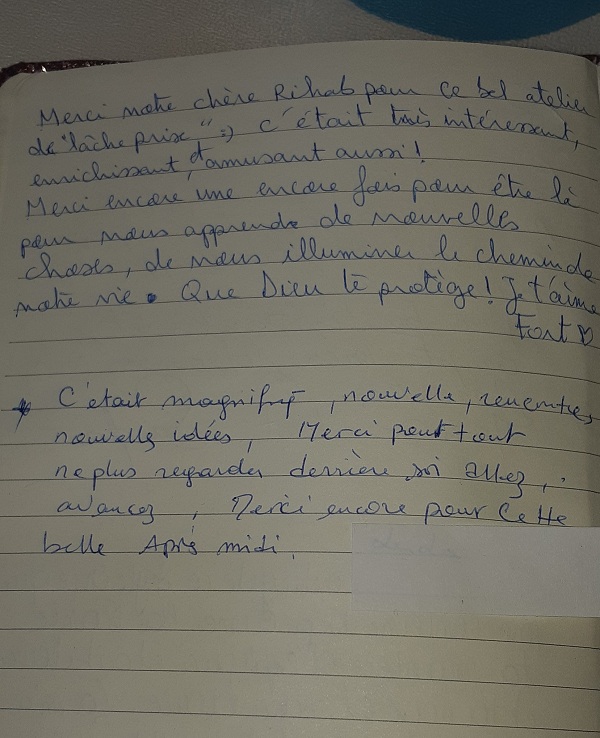 Merci notre chère Rihab pour ce bel atelier
de "lâche prise" :) c'était très intéressant,
enrichissant, et amusant aussi!
Merci encore une encore fois pour être là
pour nous apprendre de nouvelles
choses, de nous illuminer le chemin de
notre vie. Que Dieu te protège! Je t'aime
Fort ♡
C'était magnifiq, nouvelle, rencontres,
nouvells idées, Merci pour tout
ne plus regarder derrière allez,
avancez, Merci encore pour cette
belle Après midi.